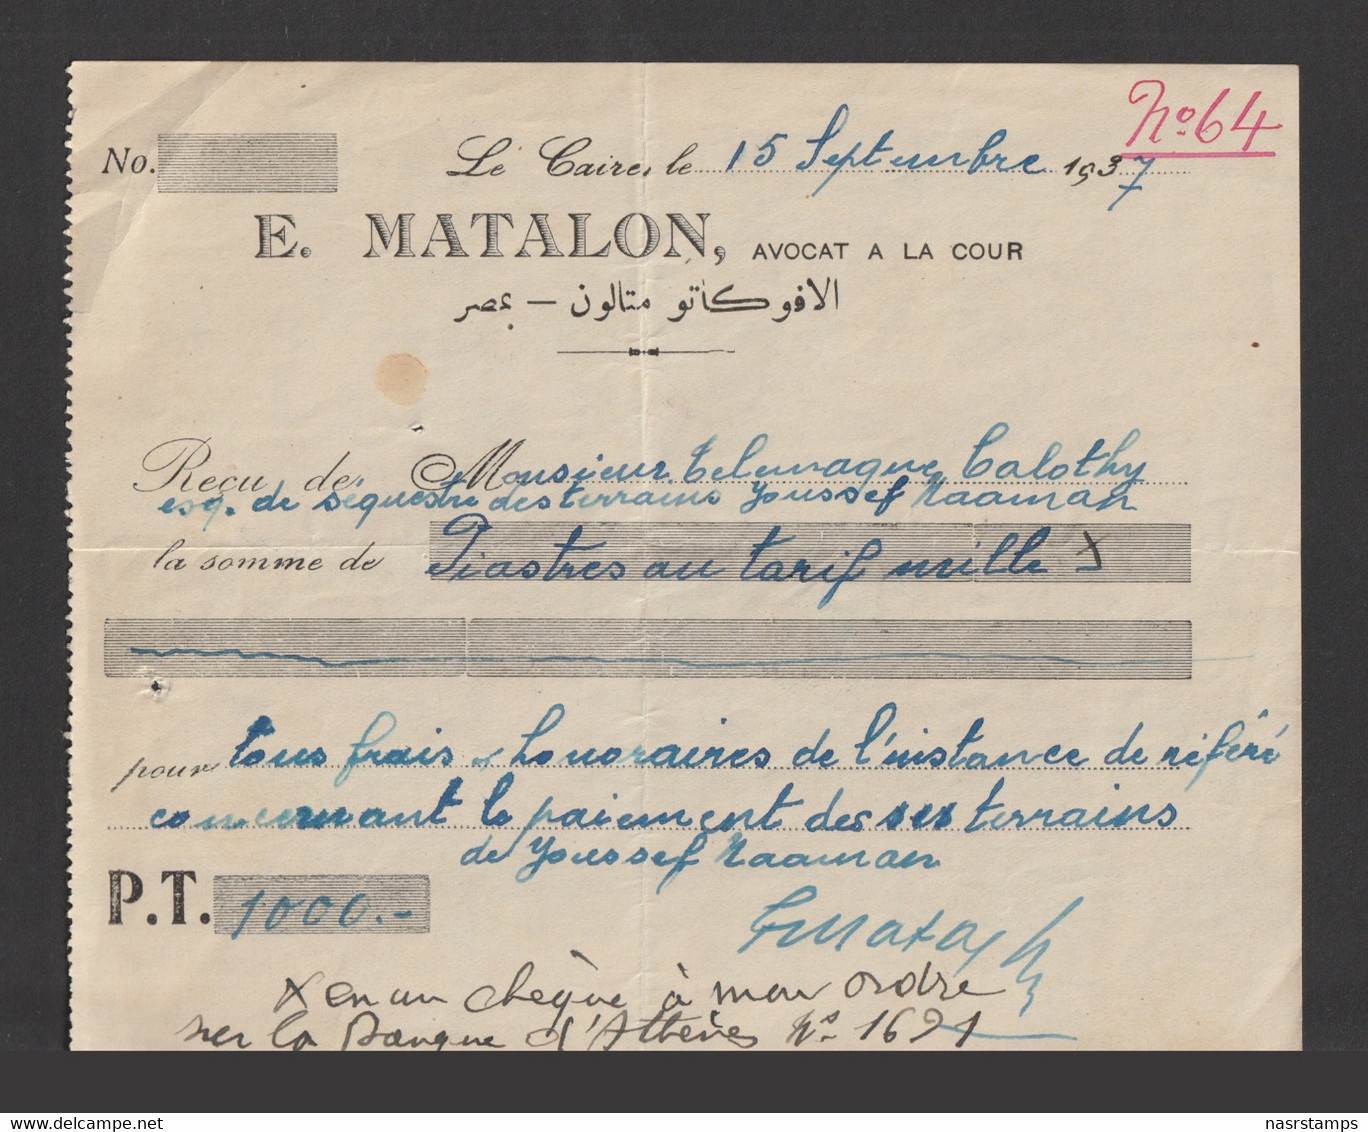 No. 64
No. Le Caire, le 15 Septembre 1937
E. MATALON, AVOCAT A LA COUR
الافوكاتو متالون – بمصر
Reçu de Monsieur Telemaque Calothy
esq. de séquestre des terrains Youssef Naaman
la somme de Piastres au tarif mille x
pour tous frais & honoraires de l'instance de référé
concernant le paiement des terrains
de Youssef Naaman
P.T. 1000.-
EMatalon
x en un chèque à mon ordre
sur la Banque d'Athènes No. 1691
nasrstamps